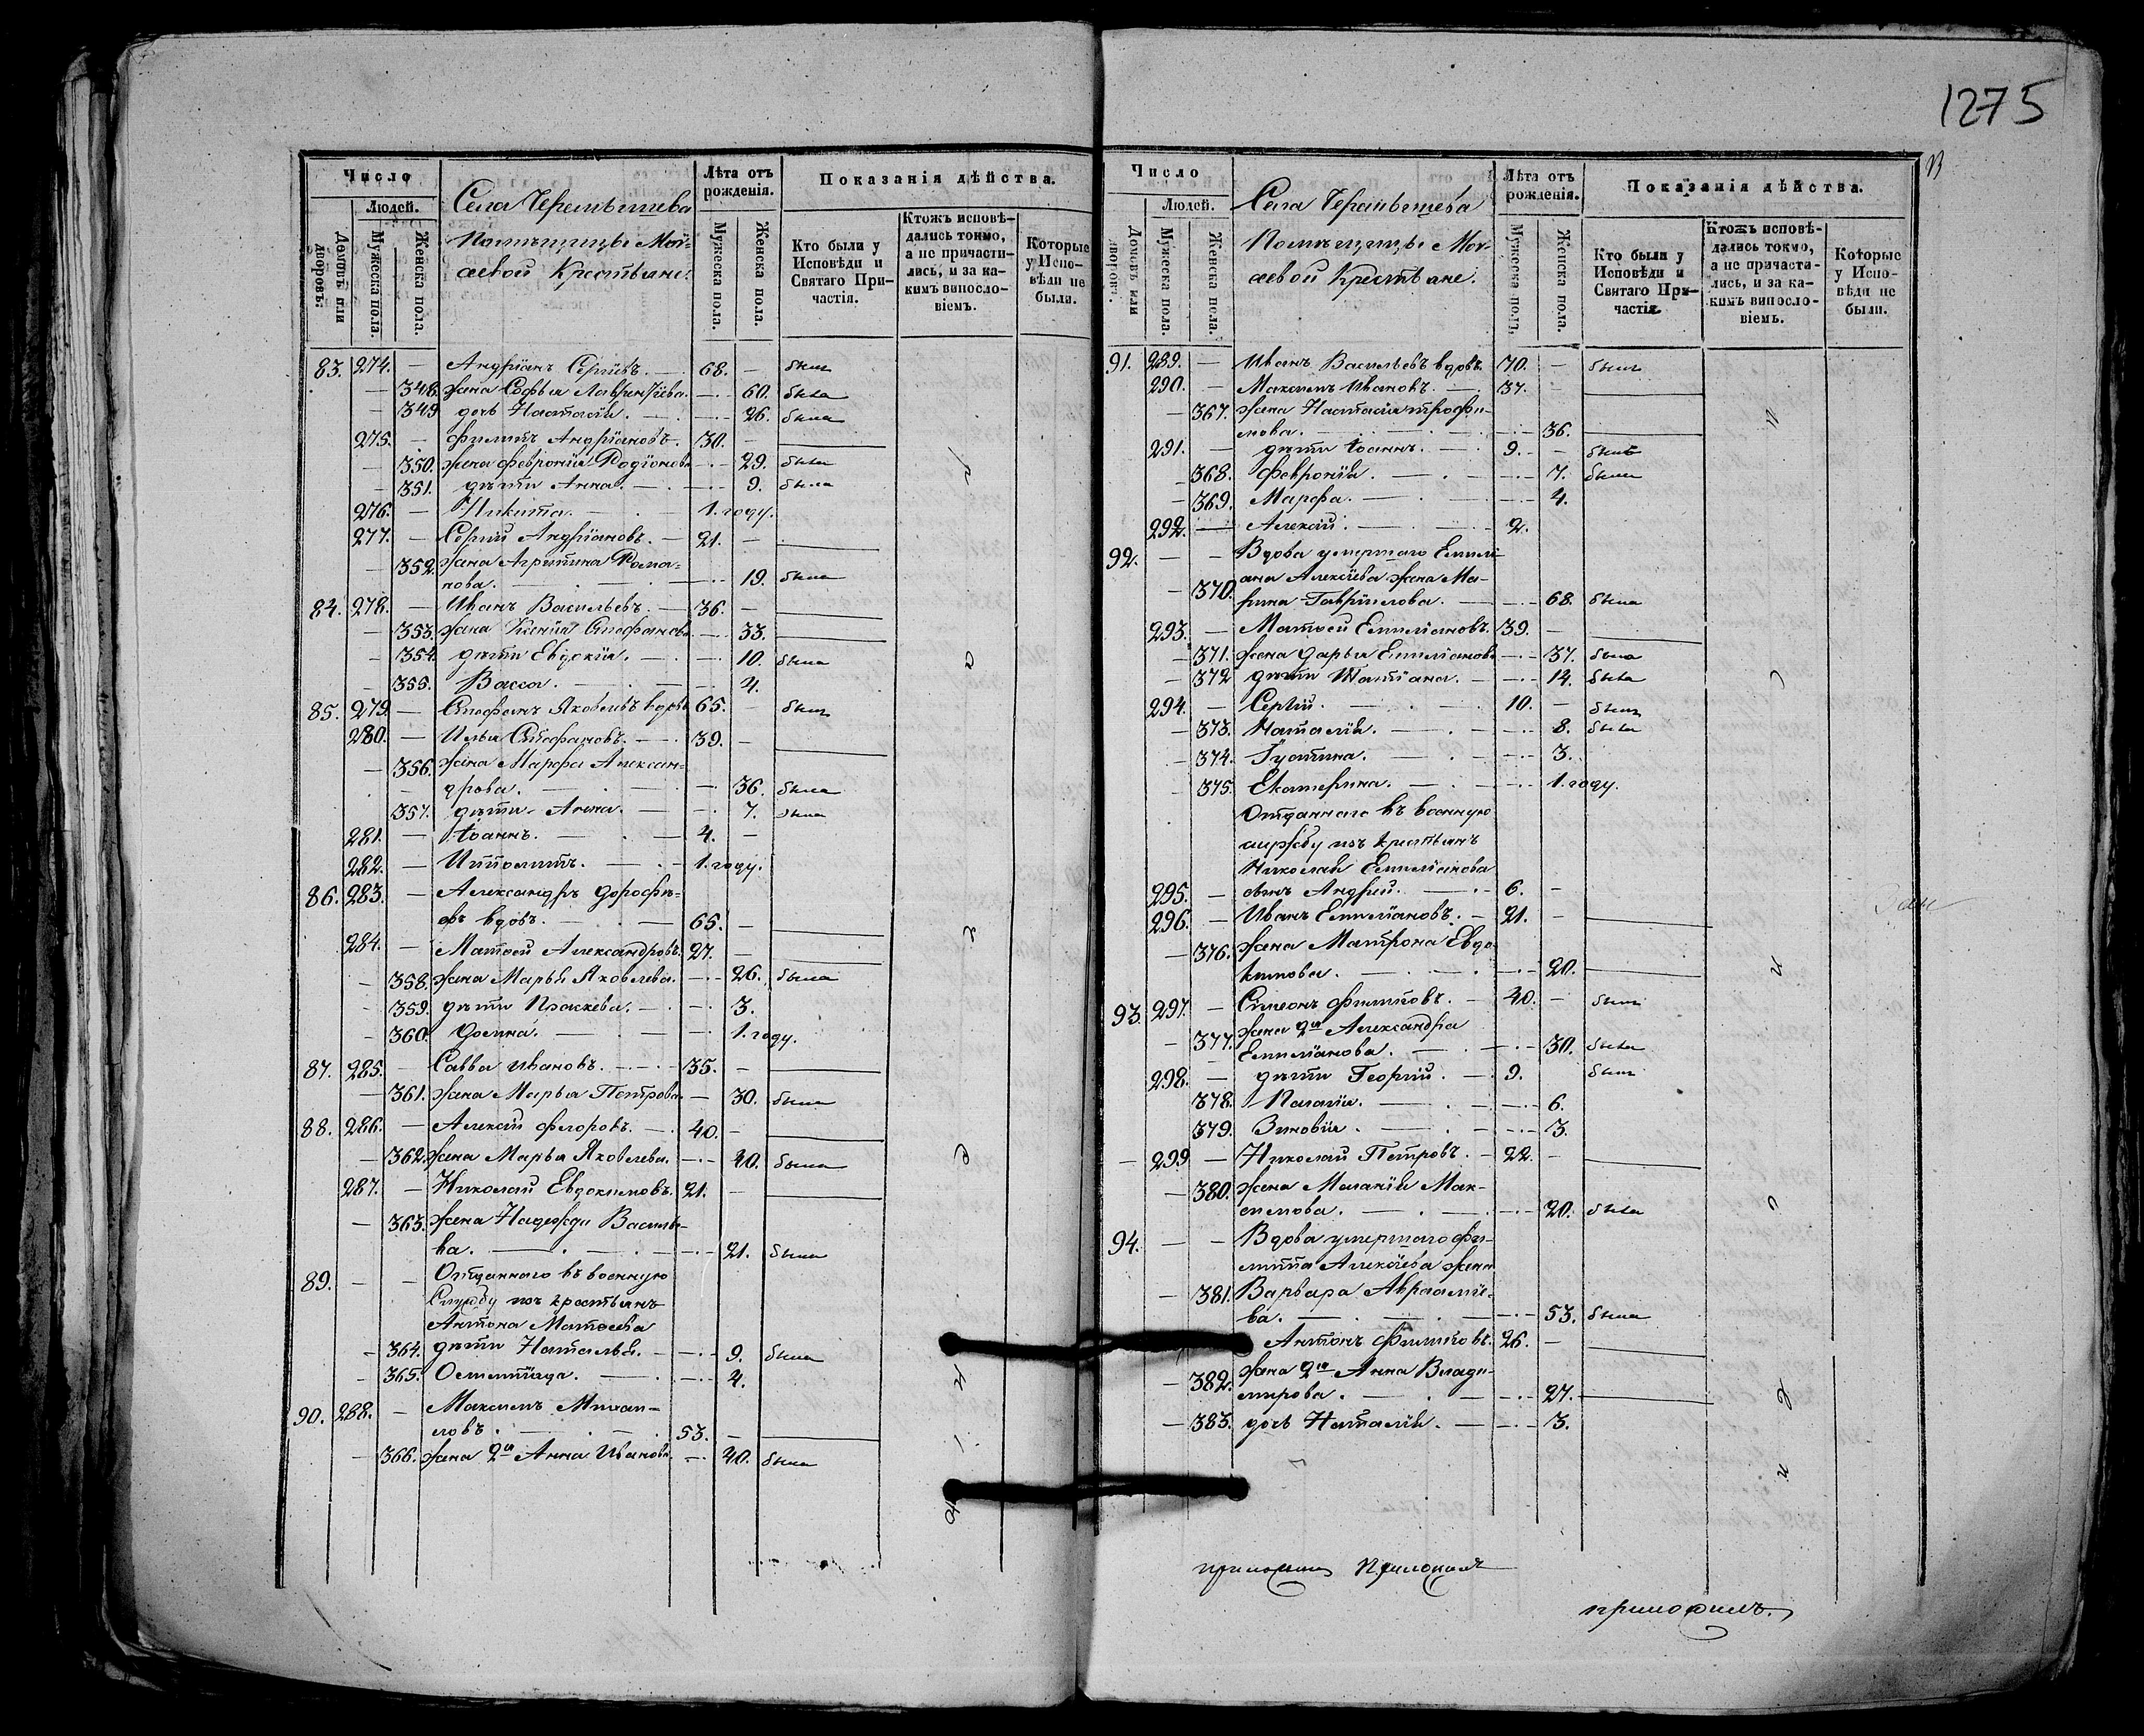 1275
Число
Людей.
Домовъ или дворовъ.
Мужеска пола.
Женска пола.
Села Черемышева
Помѣщицы Мог-
аевой Крестьяне.
Лѣта отъ рожденія.
Мужеска пола.
Женска пола.
Показанія дѣйства.
Кто были у Исповѣди и Святаго Причастія.
Ктожъ исповѣ-
дались токмо,
а не причасти-
лись, и за ка-
кимъ винословіемъ.
Которые у Исповѣди не были.
83. 274. — Андріанъ Сергіевъ. — 68. — былъ
— 348. жена Софья Лаврентіева. — 60. была
— 349 дочь Настасія. — 26. была
275. — Филиппъ Андріановъ. 30. —
— 350. жена Февронія Родіонова — 29. была
— 351. дѣти Анна. — 9. была
276. — Никита. — 1. году.
277. — Сергій Андріановъ. — 21. —
— 352. жена Агрипина Рома-
нова. — 19. была
84. 278. — Иванъ Васильевъ. — 36. —
— 353. жена Ксенія Стефанова — 33.
— 354. дѣти Евдокія. — 10. была
355. Васса. — 4.
85. 279. — Стефанъ Яковлевъ вдовъ 65. — былъ
280. — Илья Стефановъ. — 39. —
— 356. жена Марфа Алексан-
дрова. — 36. была
357. дѣти Анна. — 7. была
281. — Іоаннъ. — 4. —
282. — Ипполитъ. — 1. году.
86. 283. — Александръ Дорофѣ-
евъ вдовъ. — 65. —
284. — Матвей Александровъ. 27. —
— 358. жена Марья Яковлева. — 26. была
— 359. дѣти Праскева. — 3.
— 360. Домна. — 1. году.
87. 285. — Савва Ивановъ. — 35. —
— 361. жена Марья Петрова. — 30. была
88. 286. — Алексій Федоровъ. — 40. —
— 362. жена Марья Яковлева. — 40. была
287. — Николай Евдокимовъ. 21. —
— 363. жена Надежда Василье-
ва. — 21. была
89. — — Отданнаго въ военную
Службу изъ крестьянъ
Антона Матвеева
— 364. дѣти Наталья. — 9. была
— 365. Олимпіада. — 4.
90. 288. — Максимъ Михаи-
ловъ. — 53. —
— 366. жена 2я Анна Иванова. — 40. была
Число
Людей.
Домовъ или дворовъ.
Мужеска пола.
Женска пола.
Села Черемышева
Помѣщицы Мог-
аевой Крестьяне.
Лѣта отъ рожденія.
Мужеска пола.
Женска пола.
Показанія дѣйства.
Кто были у Исповѣди и Святаго Причастія.
Ктожъ исповѣ-
дались токмо,
а не причасти-
лись, и за ка-
кимъ винословіемъ.
Которые у Исповѣди не были.
91. 289. — Иванъ Васильевъ вдовъ. 70. — былъ
290. — Максимъ Ивановъ. — 37. —
— 367. жена Настасія Трофи-
мова. — 36.
291. — дѣти Іоаннъ. — 9. — былъ
— 368. Февронія. — 7. была
— 369. Марфа. — 4.
292. — Алексій. — 2.
92. — — Вдова умершаго Емели-
ана Алексіева жена Ма-
— 370. рина Гавріилова. — 68. была
293. — Матвей Емеліановъ. 39. —
— 371. жена Дарья Емеліанова — 37. была
— 372 дѣти Татіана. — 14. была
294. — Сергій. — 10. — былъ
— 373. Наталія. — 8. была
— 374. Іустина. — 3.
— 375. Екатерина. — 1. году.
Отданнаго въ военную
службу изъ крестьянъ
Николая Емеліанова
295. — сынъ Андрей. — 6. —
296. — Иванъ Емеліановъ. — 21. —
— 376. жена Матрона Евдо-
кимова. — 20.
93. 297. — Симеонъ Филиповъ. — 40. — былъ
— 377. жена 2я Александра
Емеліанова. — 30. была
298. — дѣти Георгій. — 9. былъ
378. Пелагія. — 6.
379. Зиновія. — 3.
— 299 — Николай Петровъ. — 22. —
— 380. жена Маланія Мак-
симова. — 20. была
94. — — Вдова умершаго Фи-
липпа Алексіева жена
— 381. Варвара Авраамие-
ва. — 53. была
Антонъ Филиповъ. 26. —
— 382. жена 2я Анна Влади-
мирова. — 27.
— 383. дочь Наталія. — 3.
приложилъ.